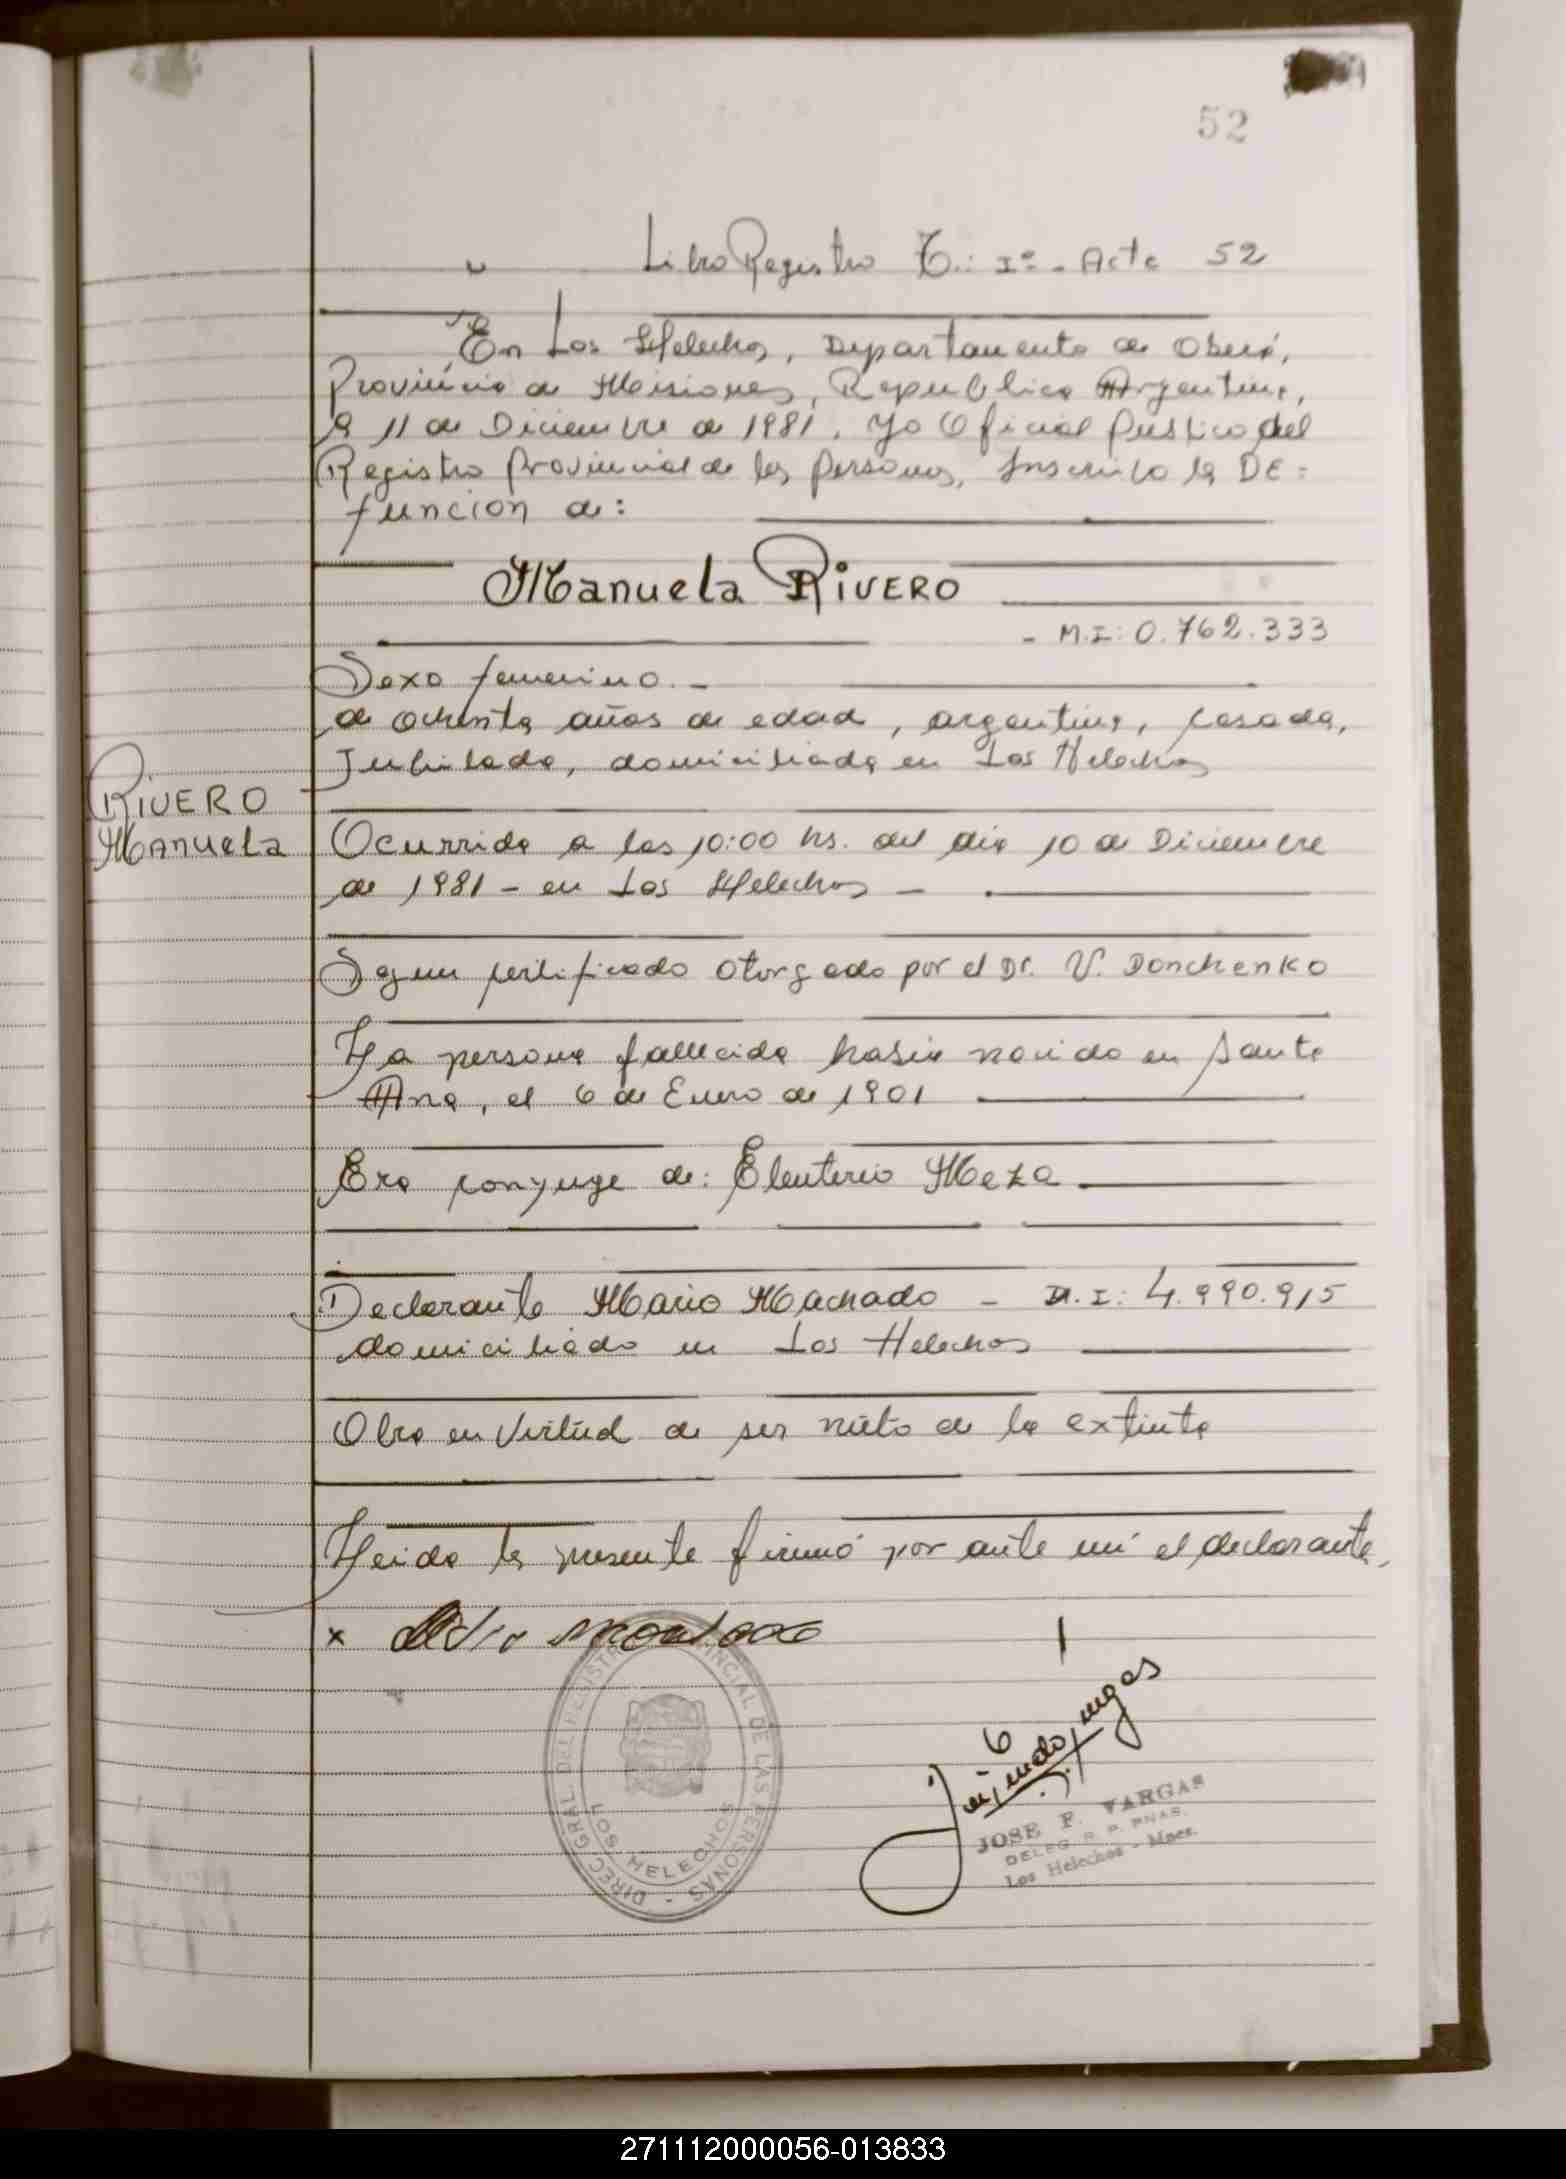 52
Libro Registro T.: Iº - Acta 52
En Los Helechos, Departamento de Oberá,
Provincia de Misiones, Republica Argentina,
a 11 de Diciembre de 1981. Yo Oficial Publico del
Registro Provincial de las Personas, Inscribo la DE=
función de:
Manuela RIVERO
- M.I: 0.762.333
Sexo femenino.-
de ochenta años de edad, argentina, casada,
Jubilada, domiciliada en Los Helechos
RIVERO
Manuela
Ocurrida a las 10:00 hs. del dia 10 de Diciembre
de 1981 - en Los Helechos -
Segun certificado otorgado por el Dr. V. Donchenko
La persona fallecida habia nacido en Santa
Ana, el 6 de Enero de 1901
Era conyuge de: Eleuterio Meza
Declarante Mario Machado - M.I: 4.990.915
domiciliado en Los Helechos
Obra en virtud de ser nieto de la extinta
Leida la presente firmó por ante mi el declarante,
x
DIREC. GRAL. DEL REGISTRO PROVINCIAL DE LAS PERSONAS -
LOS HELECHOS
JOSE F. VARGAS
DELEG. R. P. PNAS.
Los Helechos - Mnes.
271112000056-013833